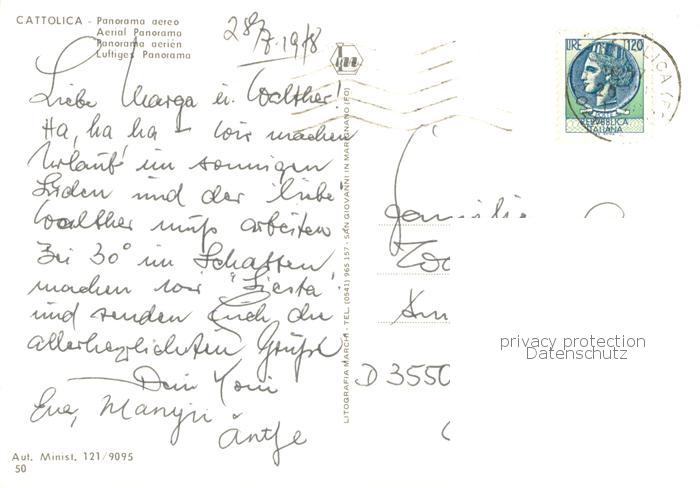 CATTOLICA - Panorama aereo
Aerial Panorama
Panorama aerien
Luftiges Panorama
Liebe Marga u. Walther!
Ha, ha ha - wir machen
Urlaub im sonnigen
Süden und der liebe
Walther muß arbeiten
Bei 30° im Schatten
machen wir "Siesta"
und senden Euch die
allerherzlichsten Grüße
Dein Toni
Eva,
Äntje
Aut. Minist. 121/9095
50
LITOGRAFIA MARCHI - TEL. (0541) 965 157 - SAN GIOVANNI IN MARIGNANO (FO)
LIRE 120
REPVBBLICA
ITALIANA
Familie
D 3550
privacy protection
Datenschutz